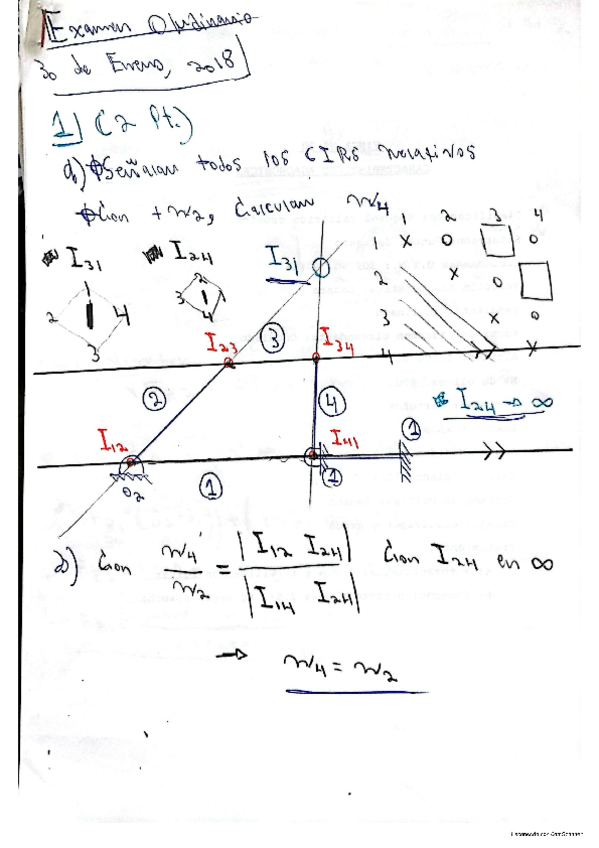 Examen Ordinario
30 de Enero, 2018
1) (2 Pt.)
a) Señalar todos los CIRS relativos
Con +w2, Calcular w4
1 2 3 4
1 X O □ O
2 X O □
3 X O
4 X
I31
1
2 4
3
I24
2
3 1
4
I31
I23
3
I34
2
4
I24 → ∞
I12
I41
1
O2
1
1
b) Con w4/w2 = |I12 I24| / |I14 I24| Con I24 en ∞
→ w4 = w2
Escaneado con CamScanner